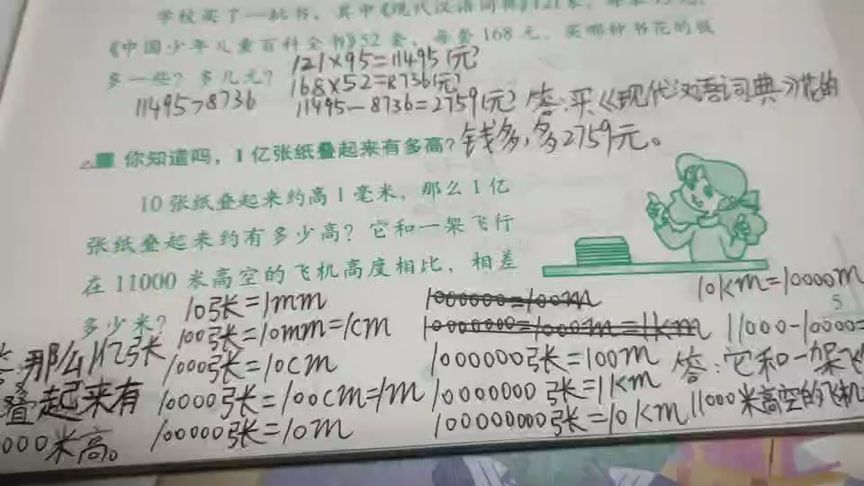 学校买了一批书,其中《现代汉语词典》121本,每本95元,
《中国少年儿童百科全书》52套,每套168元,买哪种书花的钱
多一些?多几元?
121×95=11495(元)
168×52=8736(元)
11495>8736
11495-8736=2759(元)
答:买《现代汉语词典》花的
钱多,多2759元。
你知道吗,1亿张纸叠起来有多高?
10张纸叠起来约高1毫米,那么1亿
张纸叠起来约有多少高?它和一架飞行
在11000米高空的飞机高度相比,相差
多少米?
10张=1mm
100张=10mm=1cm
1000张=10cm
10000张=100cm=1m
100000张=10m
1000000=100m
10000000=1000m=1km
1000000张=100m
10000000张=1km
100000000张=10km
10km=10000m
11000-10000=
答:它和一架飞
11000米高空的飞机
那么1亿张
叠起来有
000米高。